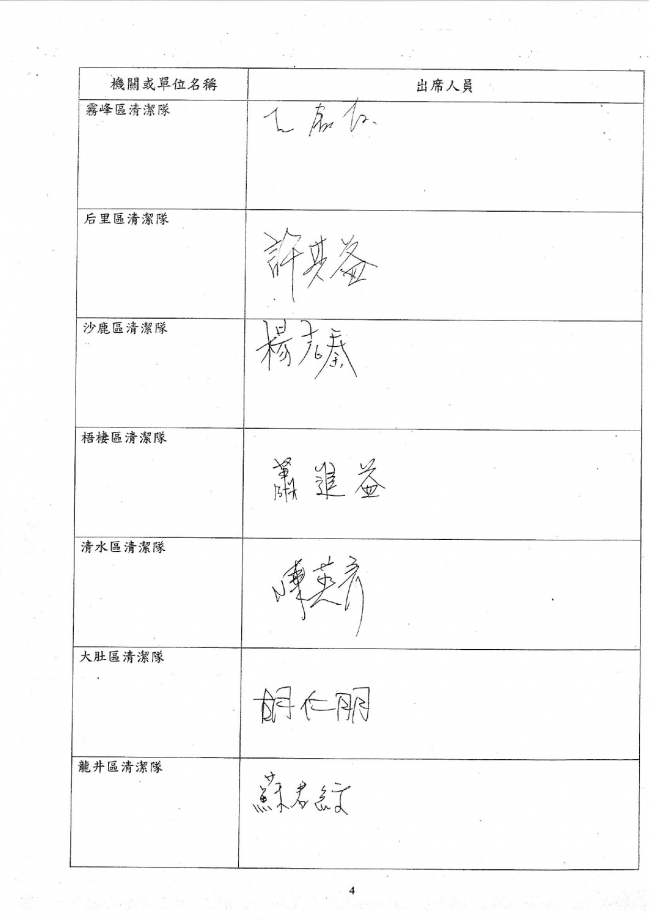 機關或單位名稱 出席人員
霧峰區清潔隊
后里區清潔隊
許英益
沙鹿區清潔隊
楊志泰
梧棲區清潔隊
蕭進益
清水區清潔隊
陳英彥
大肚區清潔隊
胡仁朋
龍井區清潔隊
蘇
4